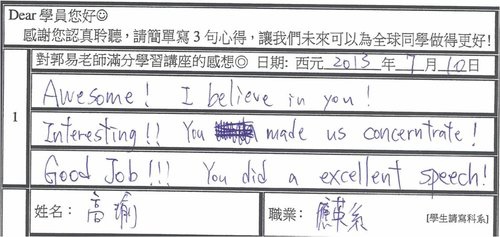 Dear 學員您好☺
感謝您認真聆聽，請簡單寫 3 句心得，讓我們未來可以為全球同學做得更好!
對郭易老師滿分學習講座的感想◎ 日期: 西元 2013 年 7 月 10 日
1
Awesome! I believe in you!
Interesting!! You made us concerntrate!
Good Job!!! You did a excellent speech!
姓名: 高瑜
職業: 應英系 [學生請寫科系]